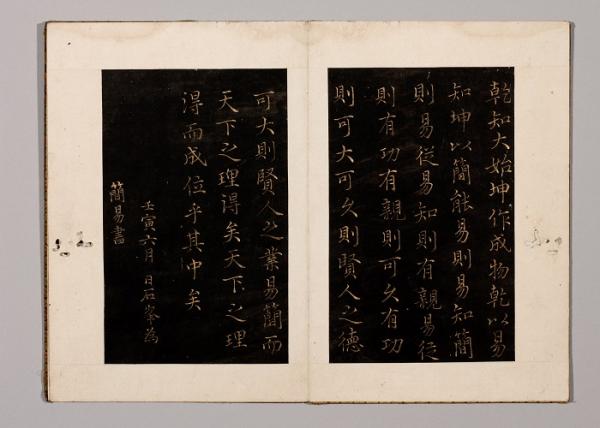 乾知大始坤作成物乾以易
知坤以簡能易則易知簡
則易從易知則有親易從
則有功有親則可久有功
則可大可久則賢人之德
可大則賢人之業易簡而
天下之理得矣天下之理
得而成位乎其中矣
壬寅六月 日石峯為
簡易書